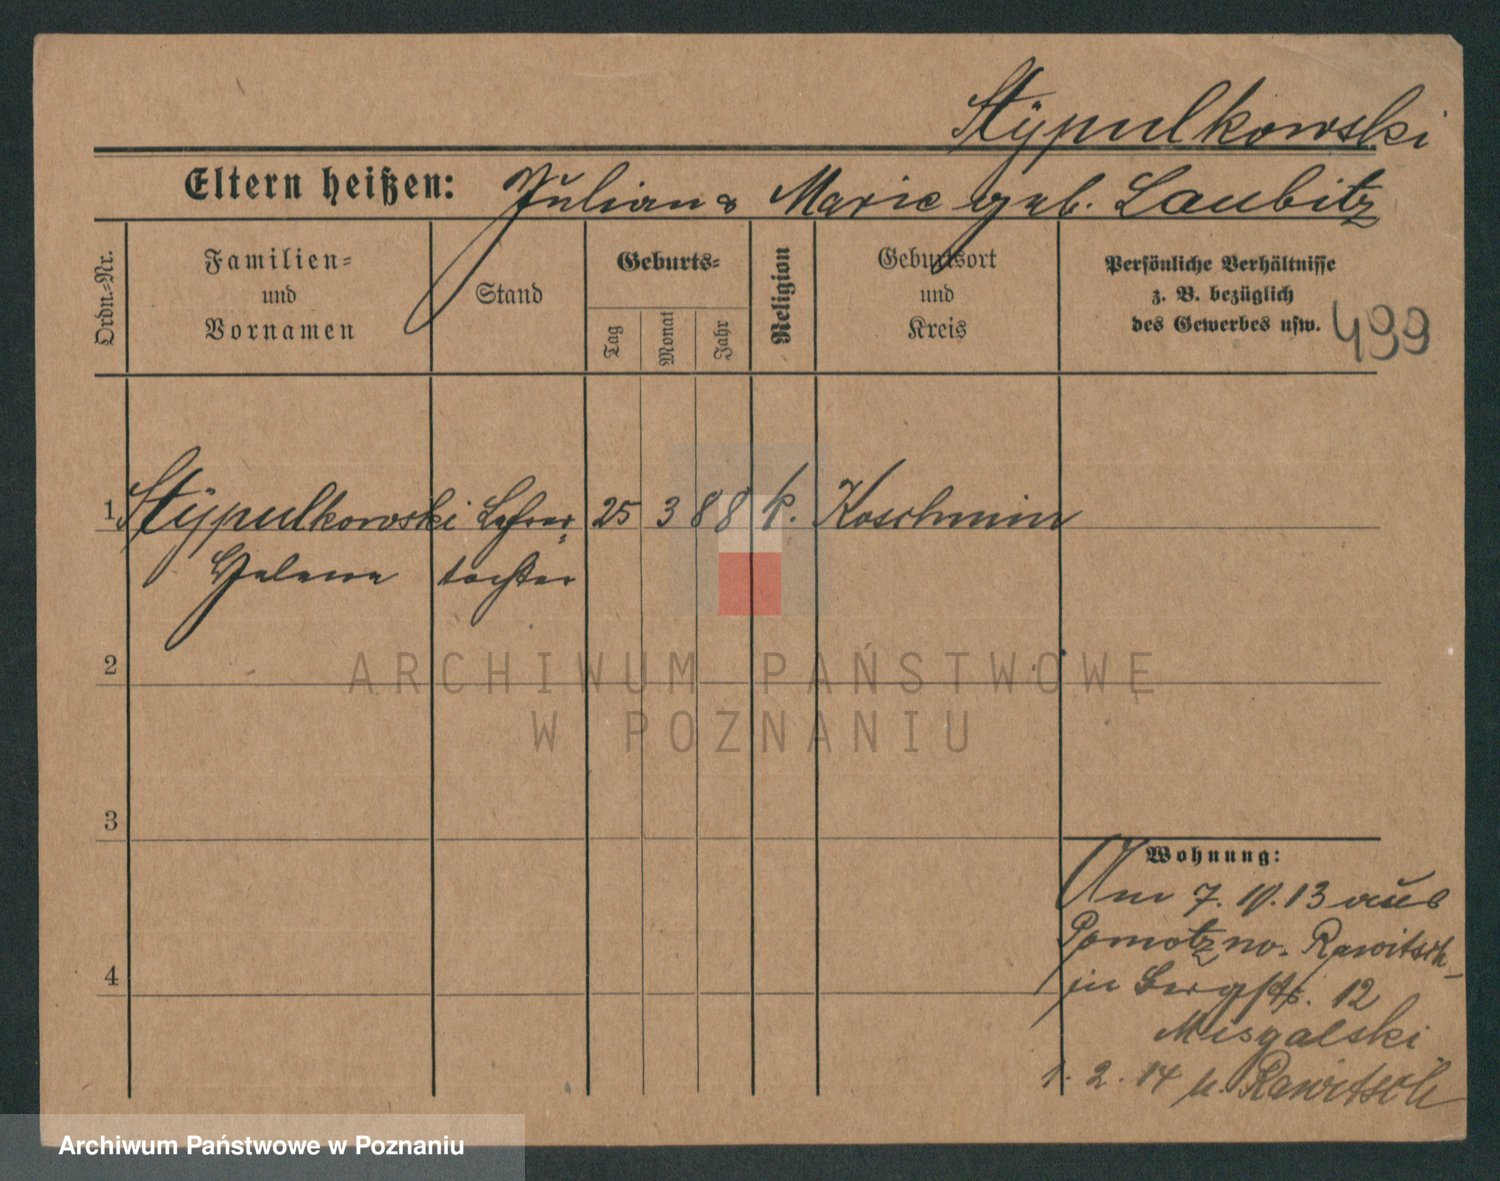 Stÿpulkowski
Eltern heißen: Julian & Marie geb. Laubitz
Ordn.-Nr.
Familien-
und
Vornamen
Stand
Geburts-
Tag
Monat
Jahr
Religion
Geburtsort
und
Kreis
Persönliche Verhältnisse
z. B. bezüglich
des Gewerbes usw.
499
1 Stÿpulkowski Lehrer- 25 3 88 k. Koschmin
Helene tochter
2
ARCHIWUM PAŃSTWOWE
W POZNANIU
3
Wohnung:
Am 7. 10. 13 aus
Rawitsch
in Bergstr. 12
Misgalski
4
1. 2. 14 n. Rawitsch
Archiwum Państwowe w Poznaniu